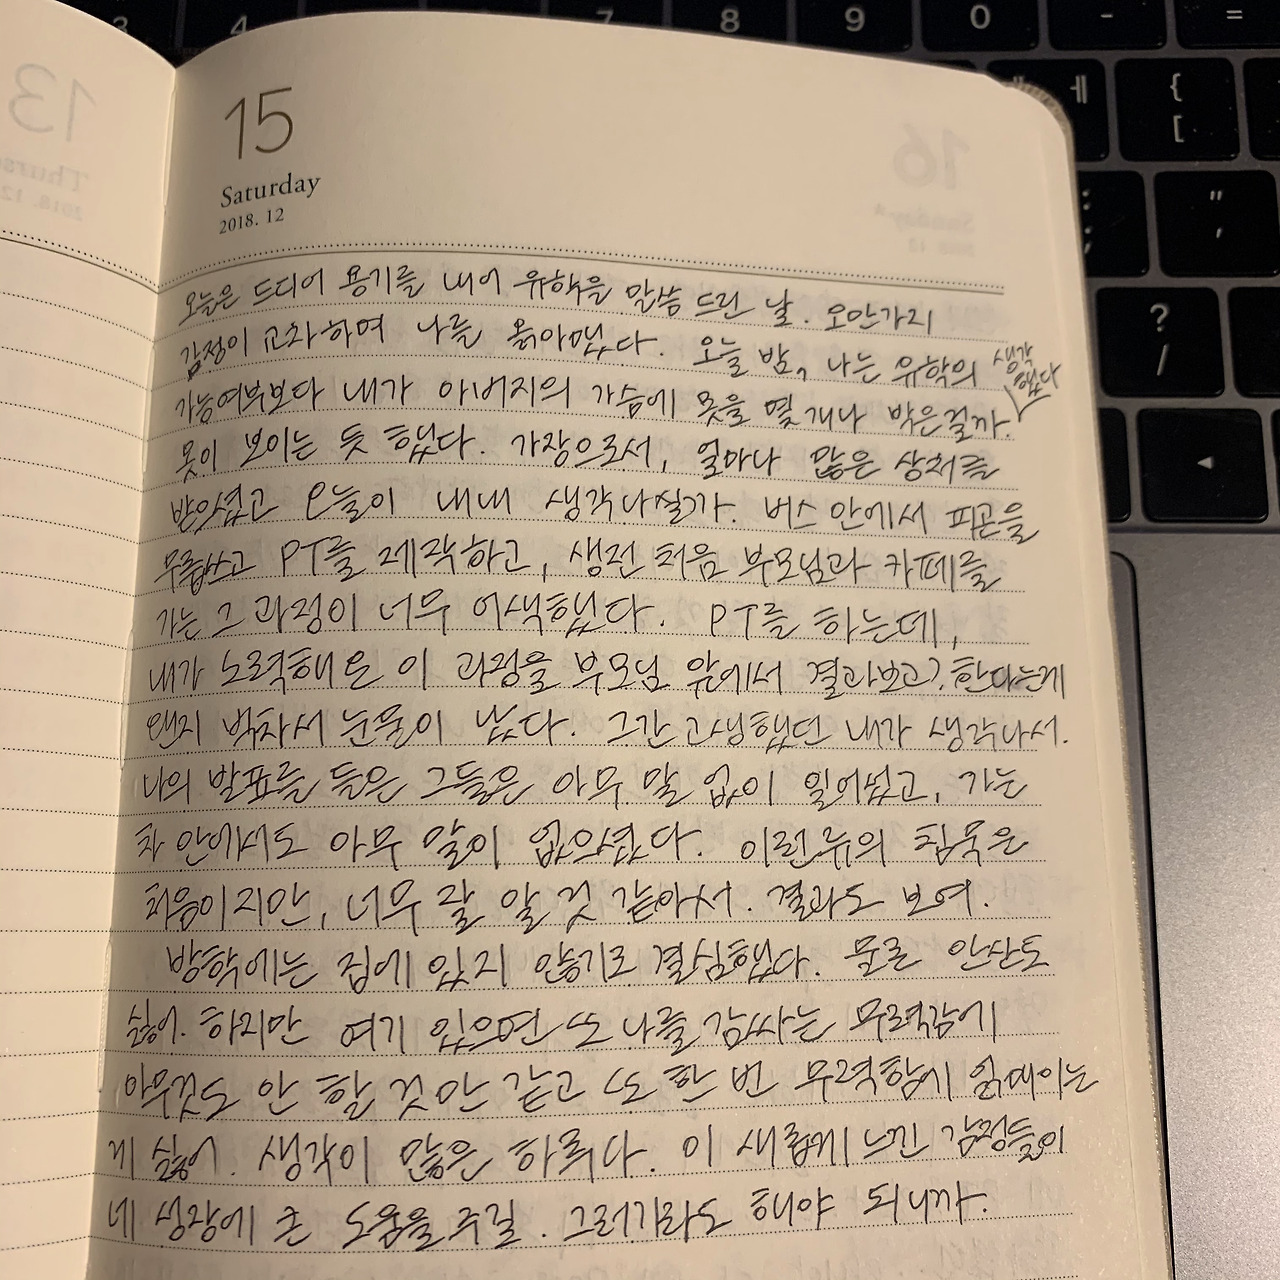 3 4 7 8 9 0 - =
{ [
" '
? /
◄
13
Thurs
2018. 12
15
Saturday
2018. 12
16
Sunday
오늘은 드디어 용기를 내어 유학을 말씀 드린 날. 오만가지
감정이 교차하며 나를 옭아맸다. 오늘 밤, 나는 유학의
가능여부보다 내가 아버지의 가슴에 못을 몇 개나 박은걸까. 생각했다
못이 보이는 듯 했다. 가장으로서, 얼마나 많은 상처를
받으셨고 오늘이 내내 생각나실까. 버스 안에서 피곤을
무릅쓰고 PT를 제작하고, 생전 처음 부모님과 카페를
가는 그 과정이 너무 어색했다. PT를 하는데,
내가 노력해온 이 과정을 부모님 앞에서 결과보고? 한다는게
왠지 벅차서 눈물이 났다. 그간 고생했던 내가 생각나서.
나의 발표를 들은 그들은 아무 말 없이 일어섰고, 가는
차 안에서도 아무 말이 없으셨다. 이런류의 침묵은
처음이지만, 너무 잘 알 것 같아서. 결과도 보여.
방학에는 집에 있지 않기로 결심했다. 물론 안산도
싫어. 하지만 여기 있으면 또 나를 감싸는 무력감에
아무것도 안 할 것만 같고 또 한 번 무력함에 얽매이는
게 싫어. 생각이 많은 하루다. 이 새롭게 느낀 감정들이
네 성장에 큰 도움을 주길. 그러기라도 해야 되니까.